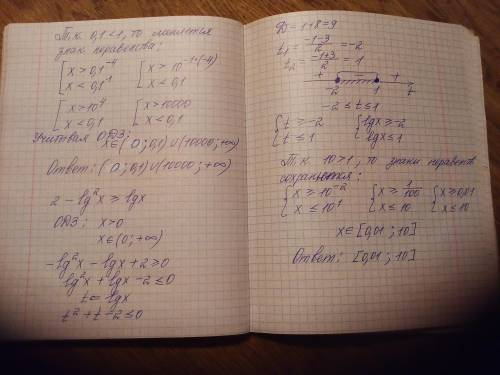 Т.к. 0,1<1, то меняется
знак неравенства:
[x>0,1⁻⁴ [x>10⁻¹*⁽⁻⁴⁾
[x<0,1¹ [x<0,1
[x>10⁴ [x>10000
[x<0,1 [x<0,1
Учитывая ОДЗ:
x∈(0;0,1)∪(10000;+∞)
Ответ: (0;0,1)∪(10000;+∞)
2-lg²x≥lgx
ОДЗ: x>0
x∈(0;+∞)
-lg²x-lgx+2≥0
lg²x+lgx-2≤0
t=lgx
t²+t-2≤0
Д=1+8=9
t₁=(-1-3)/2=-2
t₂=(-1+3)/2=1
+ - +
-2 1 t
-2≤t≤1
{t≥-2 {lgx≥-2
{t≤1 {lgx≤1
Т.к. 10>1, то знаки неравенств
сохраняются:
{x≥10⁻² {x≥1/100 {x≥0,01
{x≤10¹ {x≤10 {x≤10
x∈[0,01;10]
Ответ: [0,01;10]